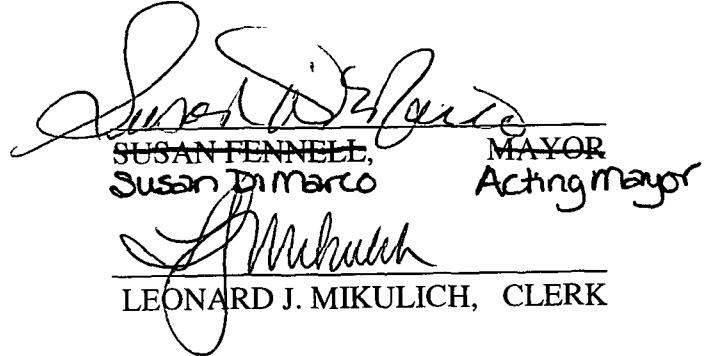 Susan DiMarco
SUSAN FENNELL, MAYOR
Susan DiMarco Acting Mayor
LJ Mikulich
LEONARD J. MIKULICH, CLERK